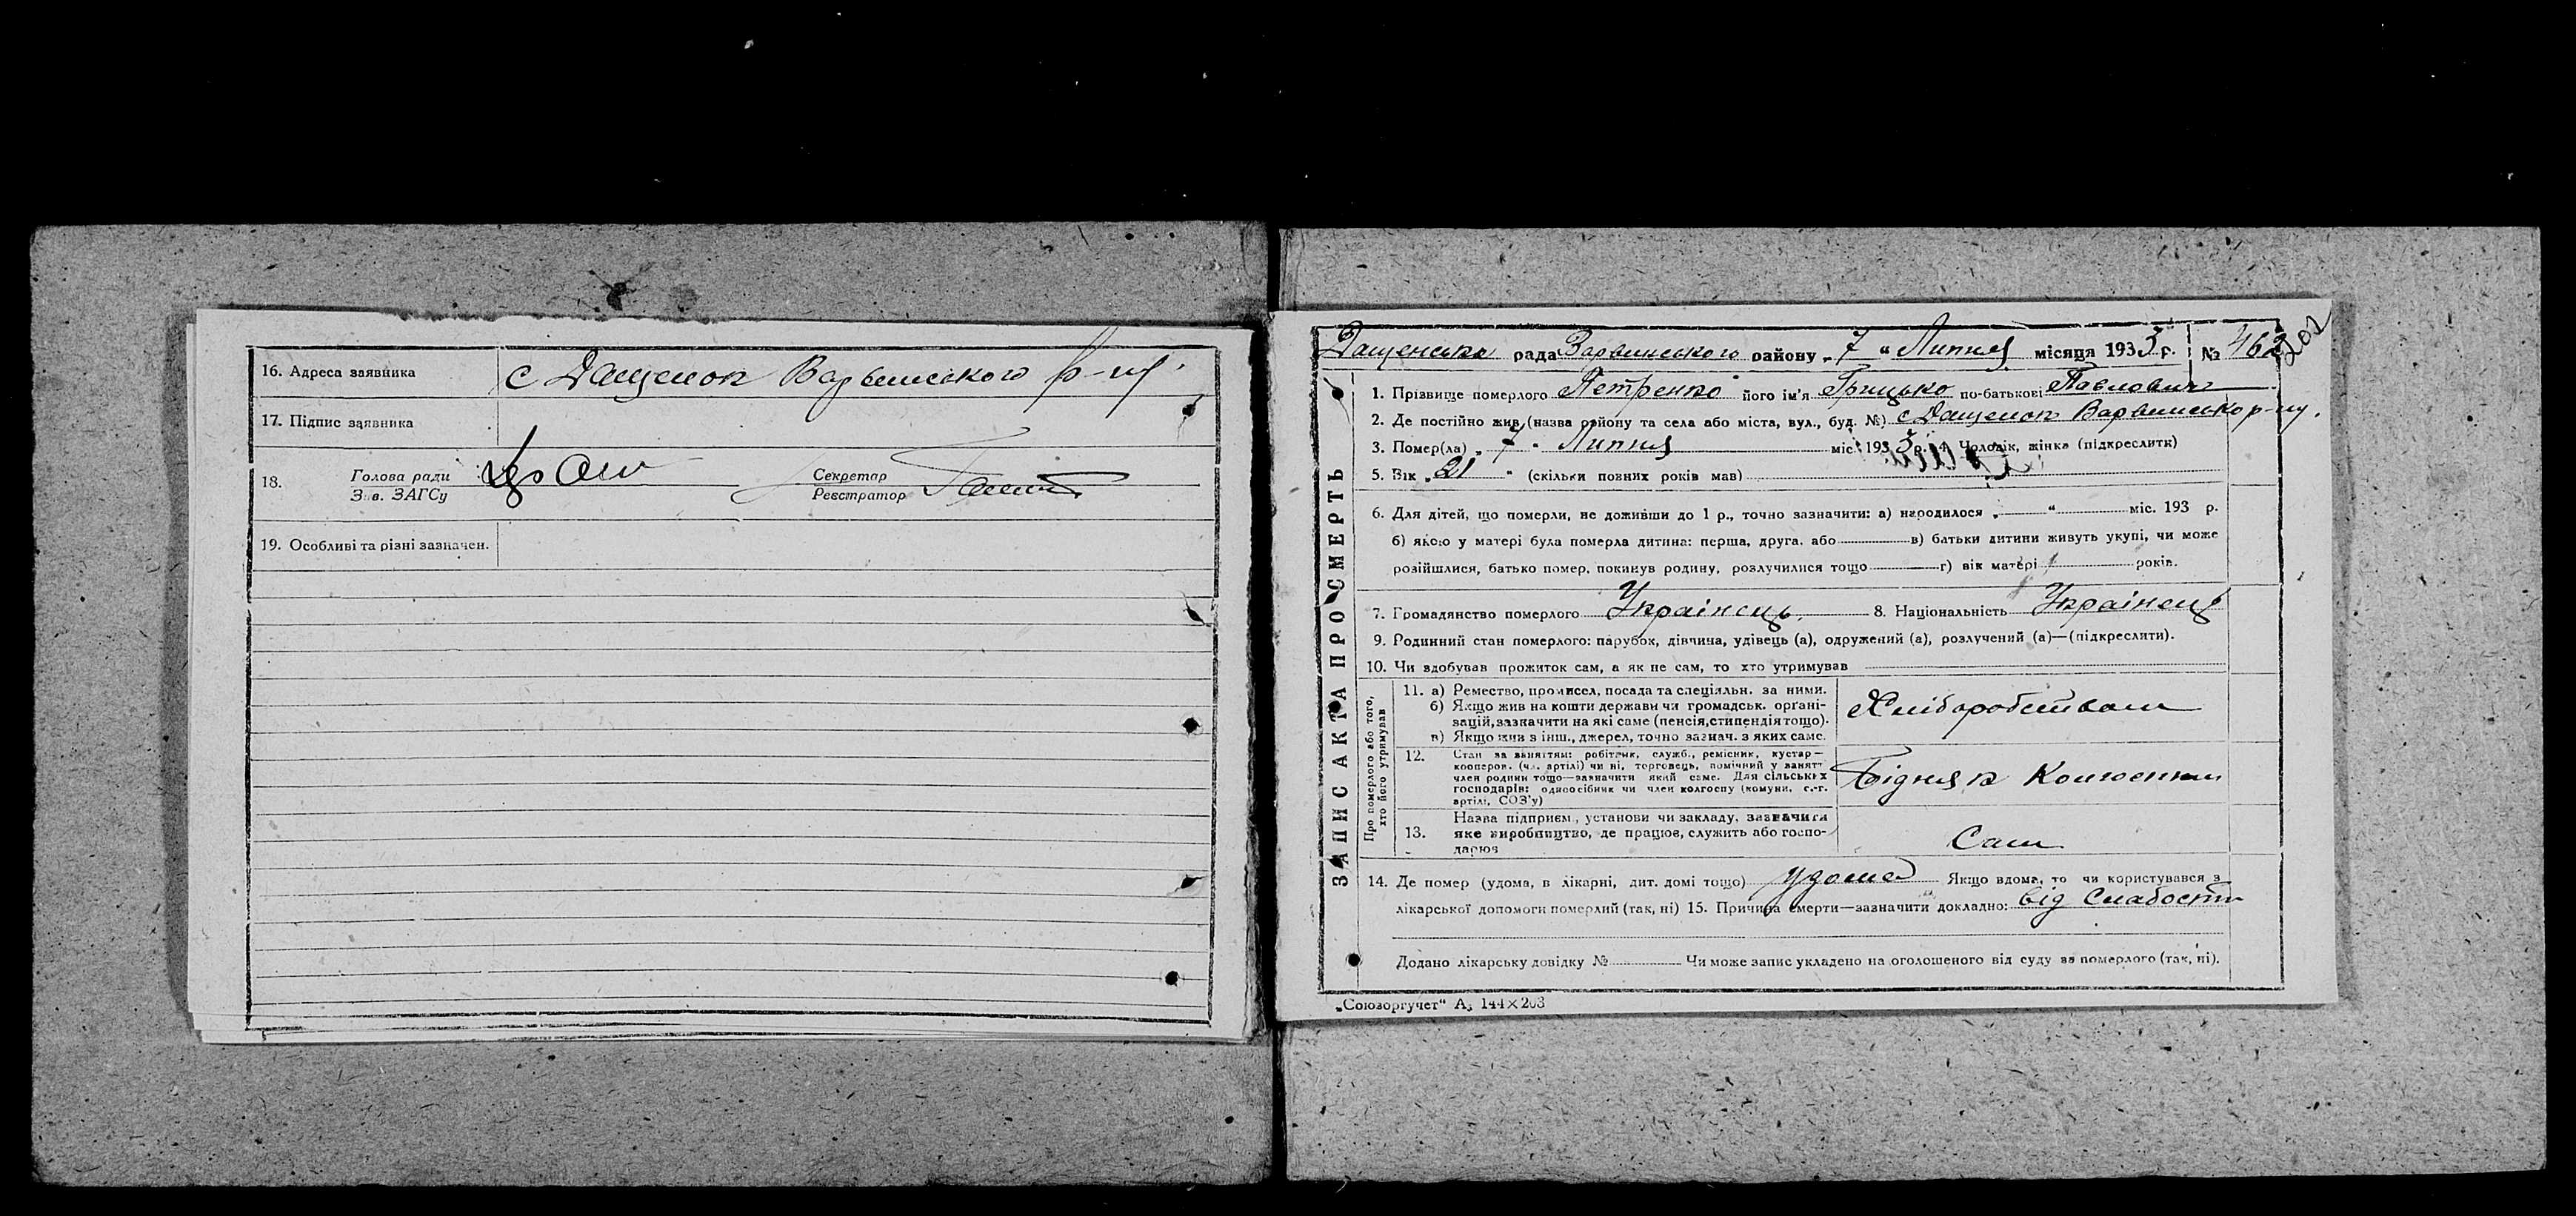 16. Адреса заявника с Дащенок Варвинського р-ну.
17. Підпис заявника
18. Голова ради
Зав. ЗАГСу
Секретар
Реєстратор
19. Особливі та різні зазначен.
Дащенська рада Варвинського району „7“ Липня місяця 1933 р. № 462
202
ЗАПИС АКТА ПРО СМЕРТЬ
1. Прізвище померлого Петренко його ім'я Грицько по-батькові Павлович
2. Де постійно жив (назва району та села або міста, вул., буд. №) с Дащенок Варвинсько р-ну.
3. Помер(ла) „7“ Липня міс. 1933 р. Чоловік, жінка (підкреслити)
5. Вік „21“ (скільки повних років мав)
6. Для дітей, що померли, не доживши до 1 р., точно зазначити: а) народилося „ “ міс. 193 р.
б) якою у матері була померла дитина: перша, друга, або в) батьки дитини живуть укупі, чи може
розійшлися, батько помер, покинув родину, розлучилися тощо г) вік матері років.
7. Громадянство померлого Українець 8. Національність Українець
9. Родинний стан померлого: парубок, дівчина, удівець (а), одружений (а), розлучений (а)—(підкреслити).
10. Чи здобував прожиток сам, а як не сам, то хто утримував
Про померлого або того,
хто його утримував
11. а) Ремество, промисел, посада та спеціяльн. за ними.
б) Якщо жив на кошти держави чи громадськ. органі-
зацій, зазначити на які саме (пенсія, стипендія тощо).
в) Якщо жив з інш., джерел, точно зазнач. з яких саме.
Хліборобством
12. Стан за заняттям: робітник, служб., ремісник, кустар—
кооперов. (чл. артілі) чи ні, торговець, помічний у занятт
член родини тощо—зазначити який саме. Для сільських
господарів: одноосібник чи член колгоспу (комуни, с.-г.
артілі, СОЗ'у)
Бідняк
13. Назва підприєм., установи чи закладу, зазначити
яке виробництво, де працює, служить або госпо-
дарює
Сам
14. Де помер (удома, в лікарні, дит. домі тощо) удома Якщо вдома, то чи користувався з
лікарської допомоги померлий (так, ні) 15. Причина смерти—зазначити докладно: від Слабости
Додано лікарську довідку № Чи може запис укладено на оголошеного від суду за померлого (так, ні).
„Союзоргучет“ А₅ 144×203